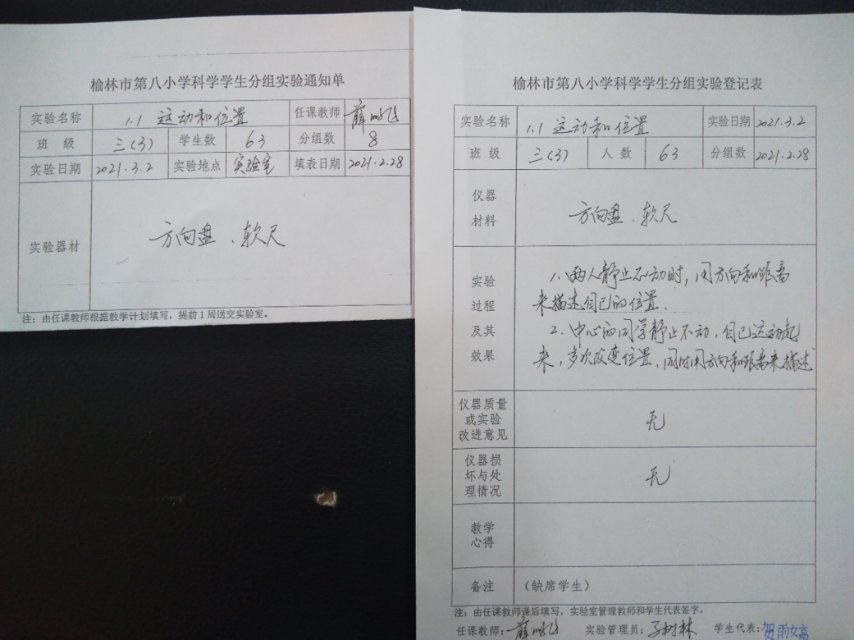 榆林市第八小学科学学生分组实验通知单
实验名称 1.1 运动和位置 任课教师 薛
班级 三(3) 学生数 63 分组数 8
实验日期 2021.3.2 实验地点 实验室 填表日期 2021.2.28
实验器材 方向盘、软尺
注：由任课教师根据教学计划填写，提前1周送交实验室。
榆林市第八小学科学学生分组实验登记表
实验名称 1.1 运动和位置 实验日期 2021.3.2
班级 三(3) 人数 63 分组数 2021.2.28
仪器
材料
方向盘、软尺
实验
过程
及其
效果
1、两人静止不动时，用方向和距离
来描述自己的位置.
2、中心的同学静止不动，自己运动起
来，多次改变位置，同时用方向和距离来描述
仪器质量
或实验
改进意见
无
仪器损
坏与处
理情况
无
教学
心得
备注 (缺席学生)
注：由任课教师课后填写，实验室管理教师和学生代表签字。
任课教师：薛 实验管理员：树林 学生代表：贺雨